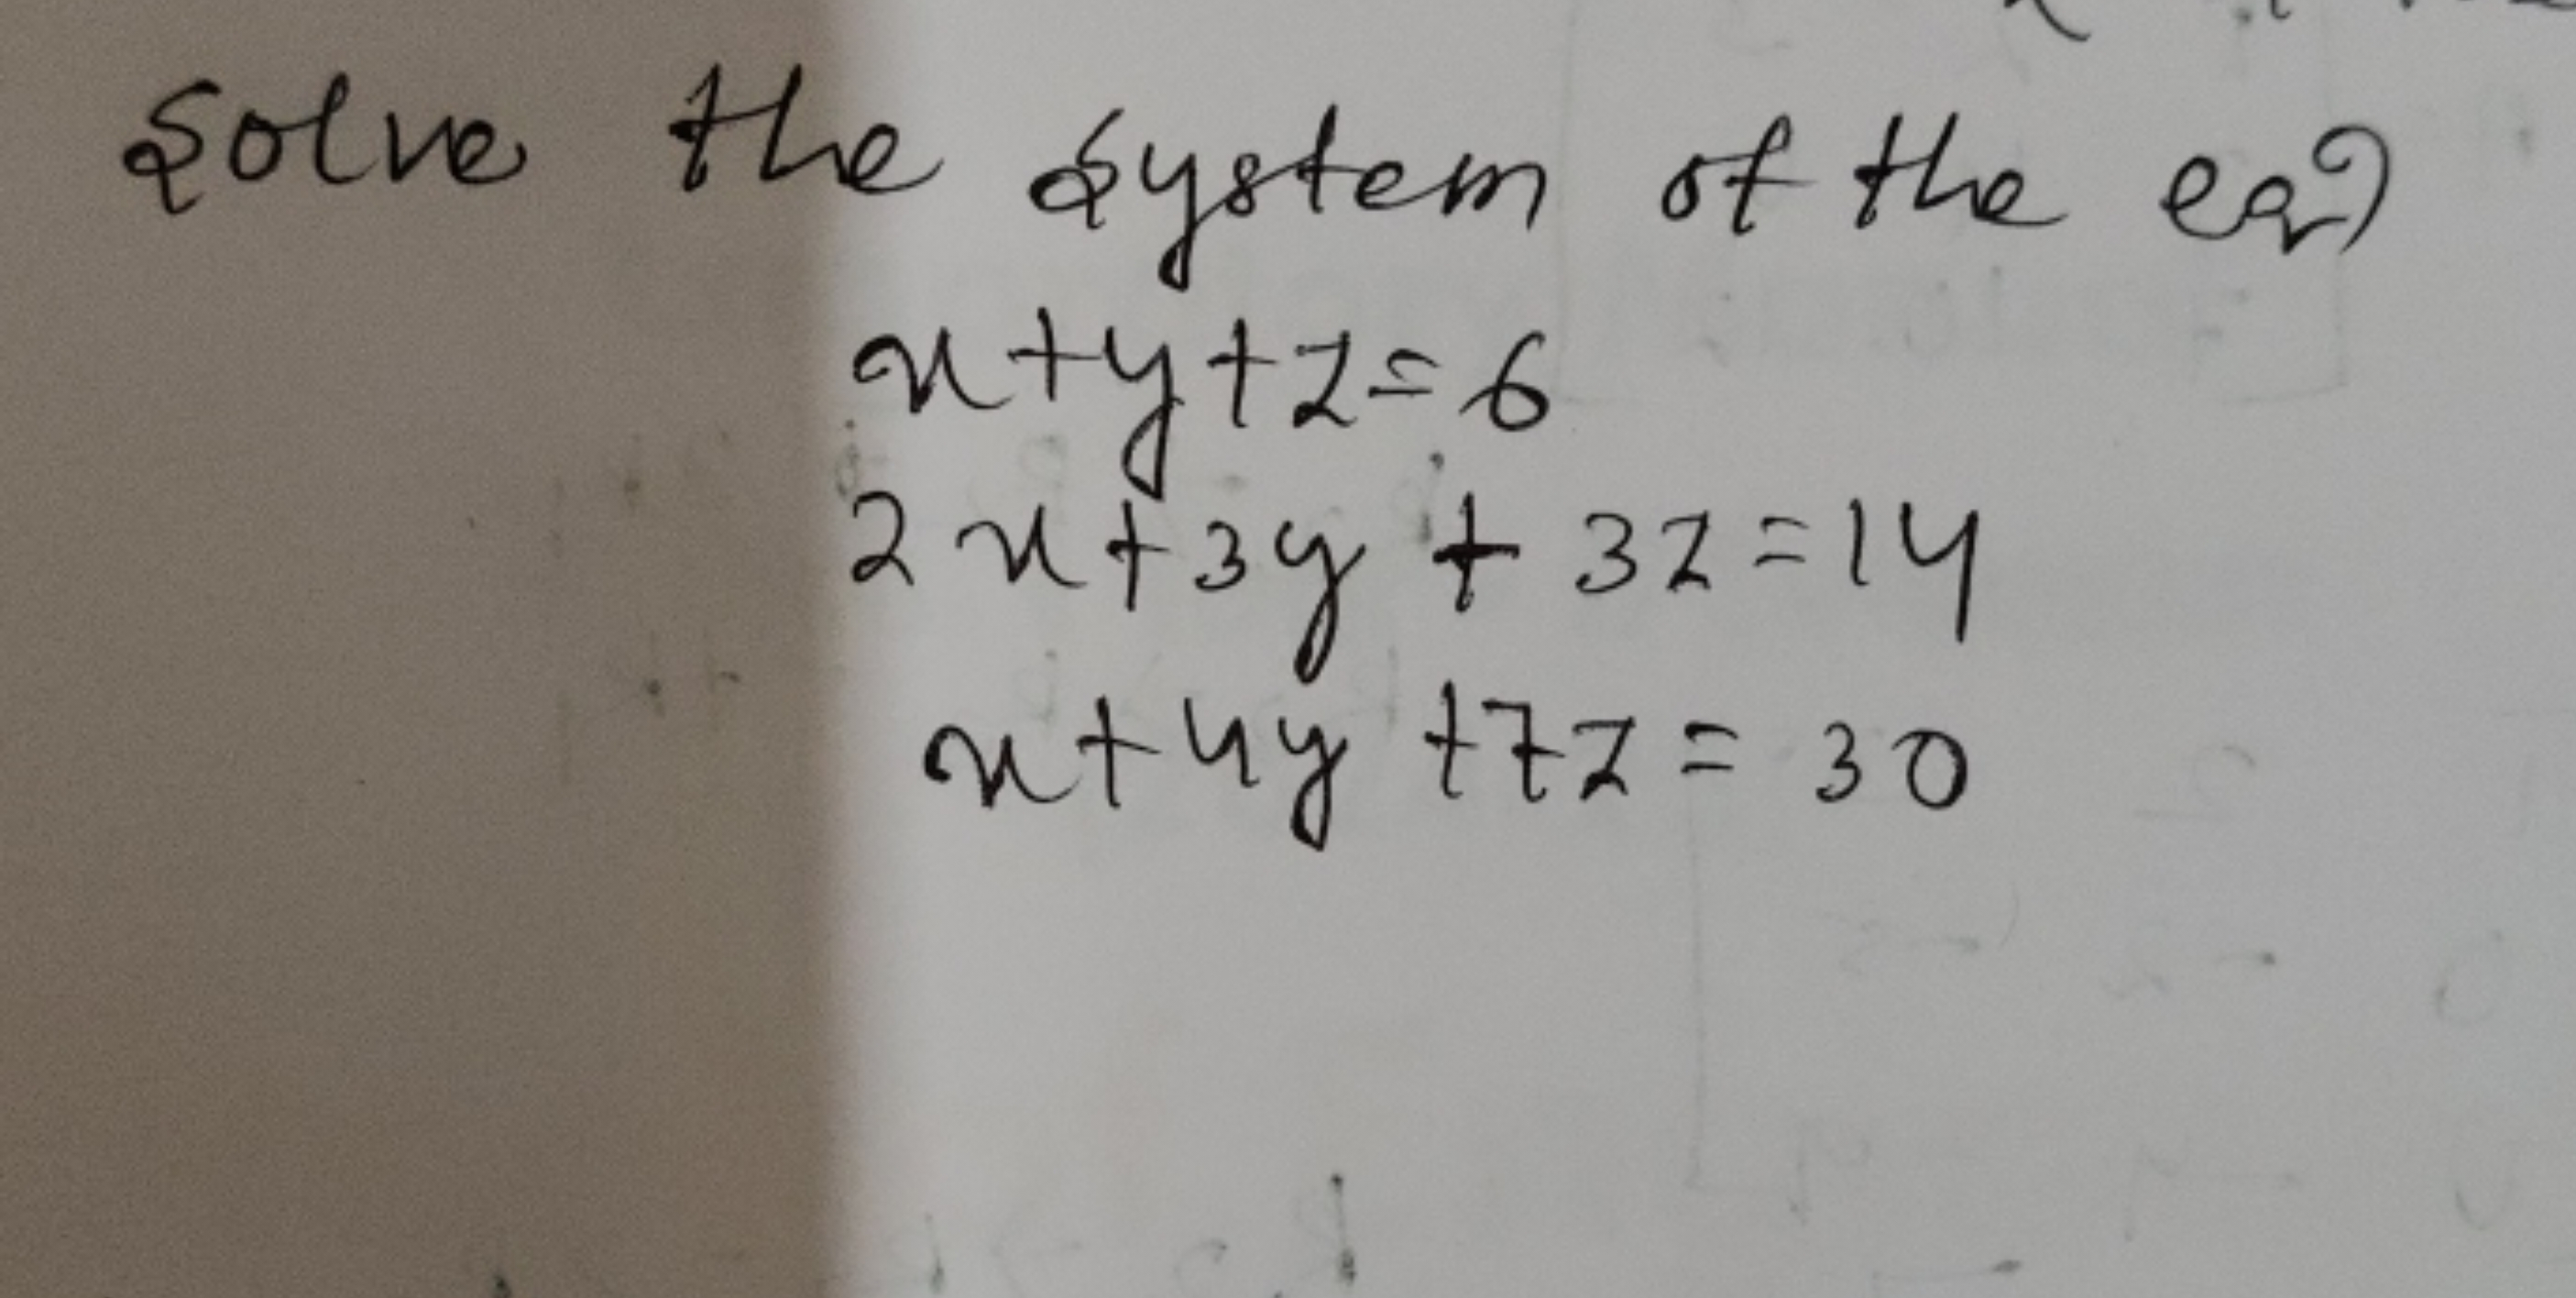 Solve the system of the eqn
x+y+z=6
2x+3y + 3z=14
x+4y +7z = 30